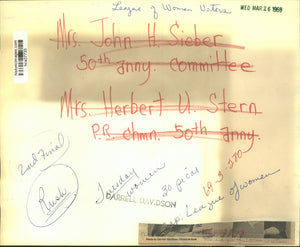 League of Women Voters
WED MAR 26 1969
Mrs. John H. Sieber
50th anny. committee
Mrs. Herbert U. Stern
P.R. chmn. 50th anny.
2nd Final
Rush
Tuesday
women
DARRELL DAVIDSON
30 picas
69-3-370
League of women